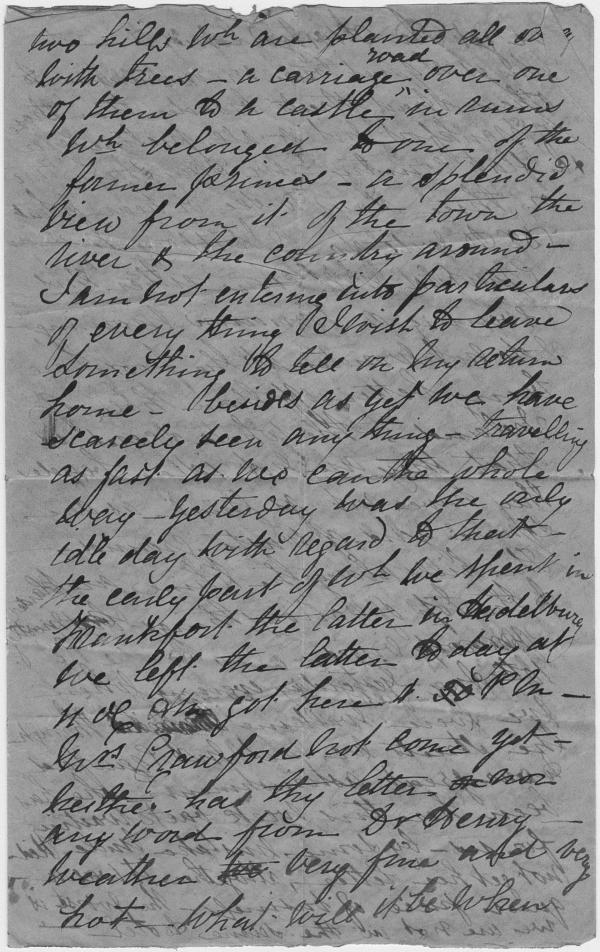 two hills wh are planted all over
with trees – a carriage road over one
of them to a castle in ruins
wh belonged to one of the
former princes – a splendid
view from it of the town the
river & the country around –
I am not entering into particulars
of every thing I wish to leave
something to tell on my return
home – besides as yet we have
scarcely seen any thing – travelling
as fast as we can the whole
way – yesterday was the only
idle day with regard to that –
the early part of wh we spent in
Frankfort the latter in Heidelburg
we left the latter to day at
11 got here at P M –
Mrs Crawford not come yet –
neither has thy letter nor
any word from Dr Henry –
weather very fine and very
hot – what will it be when